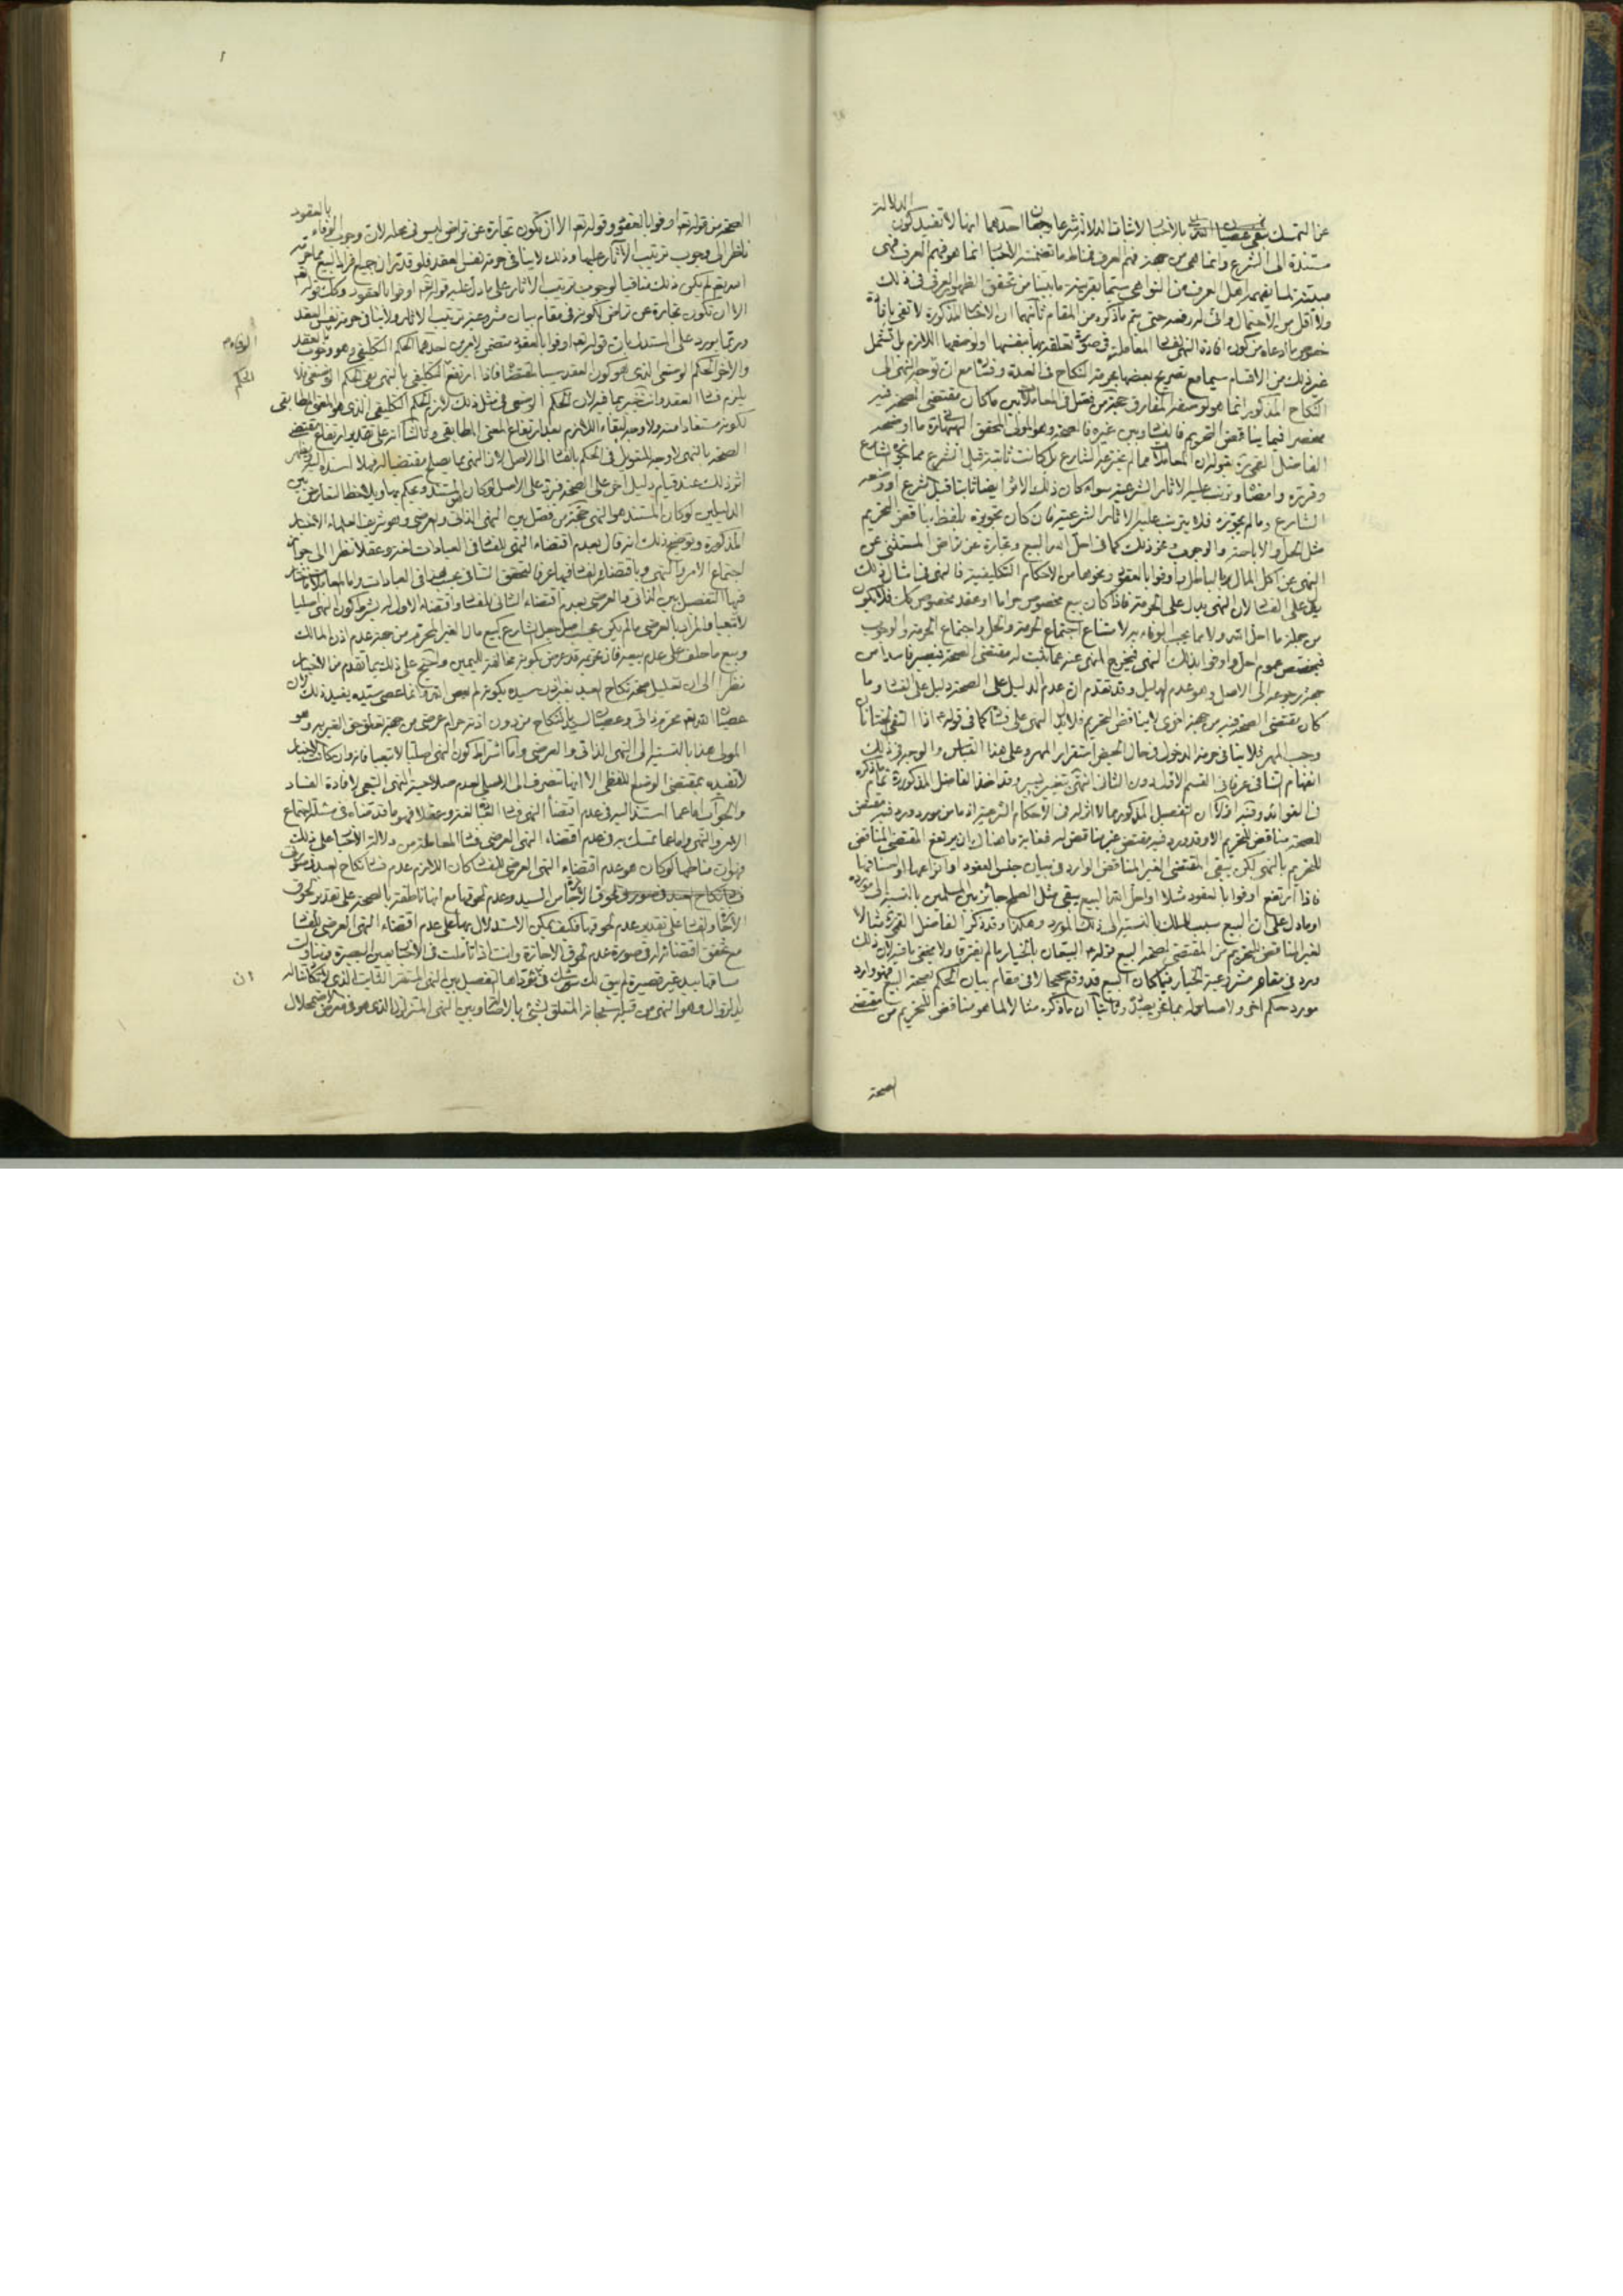 عن التمسك بالأخبار لاثبات الدلالة شرعا احدهما انها لا تفيد كون الدلالة
مستندة الى الشرع وانما هي من جهة فهم العرف انما هو فهم العرف فهي
لما يفهمه اهل العرف من النواهي سيما بقرينة ما بيننا من تحقق الظهور العرفي في ذلك
ولا أقل من الاحتمال حتى يتم ما ذكره من المقام ثانيهما ان الاخبار المذكورة لا تفي بافادة
خصوص ما ادعاه من كون افادة النهي لفساد المعاملة في صورة تعلقه بها بنفسها او لوصفها اللازم بل تشمل
غير ذلك من الاقسام سيما مع تصريح بعضها بحرمة النكاح في العدة وفساده مع ان توجه النهي الى
النكاح المذكور انما هو لوصفه المفارق حجة من فصل في المعاملات بين ما كان مقتضى الصحة فيه
منحصرا فيما يناقض التحريم فالفساد وبين غيره فالصحة وهو المولى المحقق ما اوضحه
الفاضل القمي بقوله ان المعاملات مما لم يخترعه الشارع بل كانت ثابتة قبل الشرع فما جوزه الشارع
وقرره وامضاه وترتب عليه الاثار الشرعية سواء كان ذلك الاثر ايضا ثابتا قبل الشرع او وضعه
الشارع وما لم يجوزه فلا يترتب عليه الاثار الشرعية فان كان تجويزه بلفظ يناقض التحريم
مثل الحل والاباحة والوجوب نحو ذلك كما في احل الله البيع وتجارة عن تراض المستثنى عن
النهي عن اكل المال بالباطل واوفوا بالعقود ونحوها من الاحكام التكليفية فالنهي في امثال ذلك
يدل على الفساد لان النهي يدل على الحرمة فاذا كان بيع مخصوص حراما او عقد مخصوص كذلك فلا يكون
من جملة ما احل الله ولا مما يجب الوفاء به لامتناع اجتماع الحرمة والحل واجتماع الحرمة والوجوب
فيخصص عموم احل واوفوا بذلك النهي فيخرج المنهي عنه عما يثبت له مقتضى الصحة فيصير فاسدا من
جهة رجوعه الى الاصل وهو عدم الدليل وقد تقدم ان عدم الدليل على الصحة دليل على الفساد وما
كان مقتضى الصحة فيه من جهة اخرى لا يناقض التحريم فلا يدل النهي على فساده كما في قوله اذا التقى الختانان
وجب المهر فلا ينافي حرمة الدخول في حال الحيض استقرار المهر وعلى هذا القياس والوجه في ذلك
انفهام التنافي عرفا في القسم الاول دون الثاني انتهى بتغيير يسير وقد اخذ الفاضل المذكور تمام ما ذكره
ان التفصيل المذكور مما لا اثر له في الاحكام الشرعية اذ ما من مورد ورد فيه مقتض
للصحة مناقض للتحريم الا وقد ورد فيه مقتض غير مناقض له فغاية ما هناك ان يرتفع المقتضي المناقض
للتحريم بالنهي لكن يبقى المقتضي الغير المناقض الوارد في بيان جنس العقود او انواعها او اصنافها
فاذا ارتفع اوفوا بالعقود مثلا او احل الله البيع يبقى مثل الصلح جائز بين المسلمين بالنسبة الى مورده
او ما دل على ان البيع سبب للملك بالنسبة الى ذلك المورد وهكذا وقد ذكر الفاضل القمي مثالا
لغير المناقض للتحريم من المقتضي لصحة البيع قوله البيعان بالخيار ما لم يفترقا ولا يخفى ما فيه لان ذلك
ورد في مقام مشروعية الخيار فيما كان البيع قد وقع صحيحا لا في مقام بيان الحكم بصحة البيع فهو وارد
مورد حكم اخر ولا مساس له بما نحن بصدده وثانيا ان ما ذكره مثالا لما هو مناقض للتحريم من مقتضى
الصحة
الصحة من قوله تعالى اوفوا بالعقود وقوله تعالى الا ان تكون تجارة عن تراض ليس في محله لان وجوب الوفاء بالعقود
ناظر الى وجوب ترتيب الآثار عليها وذلك لا ينافي حرمة نفس العقد فلو قدر ان جميع افراد البيع مما حرمه
الله لم يكن ذلك منافيا لوجوب ترتيب الاثار على ما دل عليه قوله تعالى اوفوا بالعقود وكذلك قوله تعالى
الا ان تكون تجارة عن تراض لكونه في مقام بيان مشروعية ترتيب الاثار ولا ينافي حرمة نفس العقد
وربما يورد على استدل بان قوله تعالى اوفوا بالعقود مقتض لامرين احدهما الحكم التكليفي وهو وجوب
والاخر الحكم الوضعي الذي هو كون العقد سببا فاذا ارتفع التكليفي بالنهي بقي الحكم الوضعي فلا
يلزم فساد العقد وانت خبير بما فيه لان الحكم الوضعي في مثل ذلك لازم للحكم التكليفي الذي هو المعنى المطابقي
لكونه مستفادا منه ولا وجه لبقاء اللازم بعد ارتفاع المعنى المطابقي وثالثا انه على تقدير ارتفاع مقتضى
الصحة بالنهي لا وجه للتعويل في الحكم بالفساد الى الاصل لان النهي مما يصلح مقتضيا له فهلا اسنده اليه
اثر ذلك عند قيام دليل اخر على الصحة فيرد على الاصل لو كان المستند ويحكم به ويلاحظ التعارض بين
الدليلين لو كان المستند هو النهي حجة من فصل بين النهي الذاتي والعرضي وهو شريف العلماء الاخبار
المذكورة وتوضيح ذلك انه قال بعدم اقتضاء النهي للفساد في العبادات لغة وعقلا نظرا الى جواز
اجتماع الامر والنهي وباقتضائه لفسادها عرفا لتحقق التنافي بحسب العرف في العبادات واما المعاملات فاختار
فيها التفصيل بين الذاتي والعرضي بعدم اقتضاء الثاني للفساد واقتضاء الاول له بشرط كون النهي اصليا
لا تبعيا والمراد بالعرضي ما لم يكن بحسب اصل جعل الشارع كبيع مال الغير المحرم من جهة عدم اذن المالك
وبيع ما حلف على عدم بيعه فان تحريمه قد عرض لكونه مخالفة لليمين واحتج على ذلك بما تقدم من الاخبار
نظرا الى ان تعليل صحة نكاح العبد بغير اذن سيده بكونه لم يعص الله وانما عصى سيده يفيد ذلك لان
عصيان الله تعالى محرم ذاتي وعصيان السيد بالنكاح من دون اذنه حرام عرضي من جهة تعلق حق الغير به وهو
المولى هذا بالنسبة الى النهي الذاتي والعرضي واما اشتراط كون النهي اصليا لا تبعيا فانه وان كانت الاخبار
لا تفيده بمقتضى الوضع اللفظي الا انها تنصرف الى الاصلي لعدم صلاحية النهي التبعي لافادة الفساد
والجواب اما عما استند اليه في عدم اقتضاء النهي فساد العبادة لغة وعقلا فهو ما قدمناه في مسئلة اجتماع
الامر والنهي واما عما تمسك به في عدم اقتضاء النهي العرضي فساد المعاملة من دلالة الاخبار على ذلك
فهو ان مناطها لو كان هو عدم اقتضاء النهي العرضي للفساد كان اللازم عدم فساد نكاح العبد في صورتي
لحوق الاجازة من السيد وعدم لحوقها مع انها ناطقة بالصحة على تقدير لحوق
الاجازة والفساد على تقدير عدم لحوقها فكيف يمكن الاستدلال بها على عدم اقتضاء النهي العرضي للفساد
مع تحقق اقتضائه له في صورة عدم لحوق الاجازة وانت اذا تأملت في الاخبار بعين البصيرة وتناولت
مساقها بيد غير قصيرة لم يبق لك شك في ان مؤداها التفصيل بين النهي المستقر الثابت الذي لا
يدله زوال وهو النهي من قبله سبحانه المتعلق بشئ بالاصالة وبين النهي المتزلزل الذي هو في معرض الاضمحلال
الحكم
ان